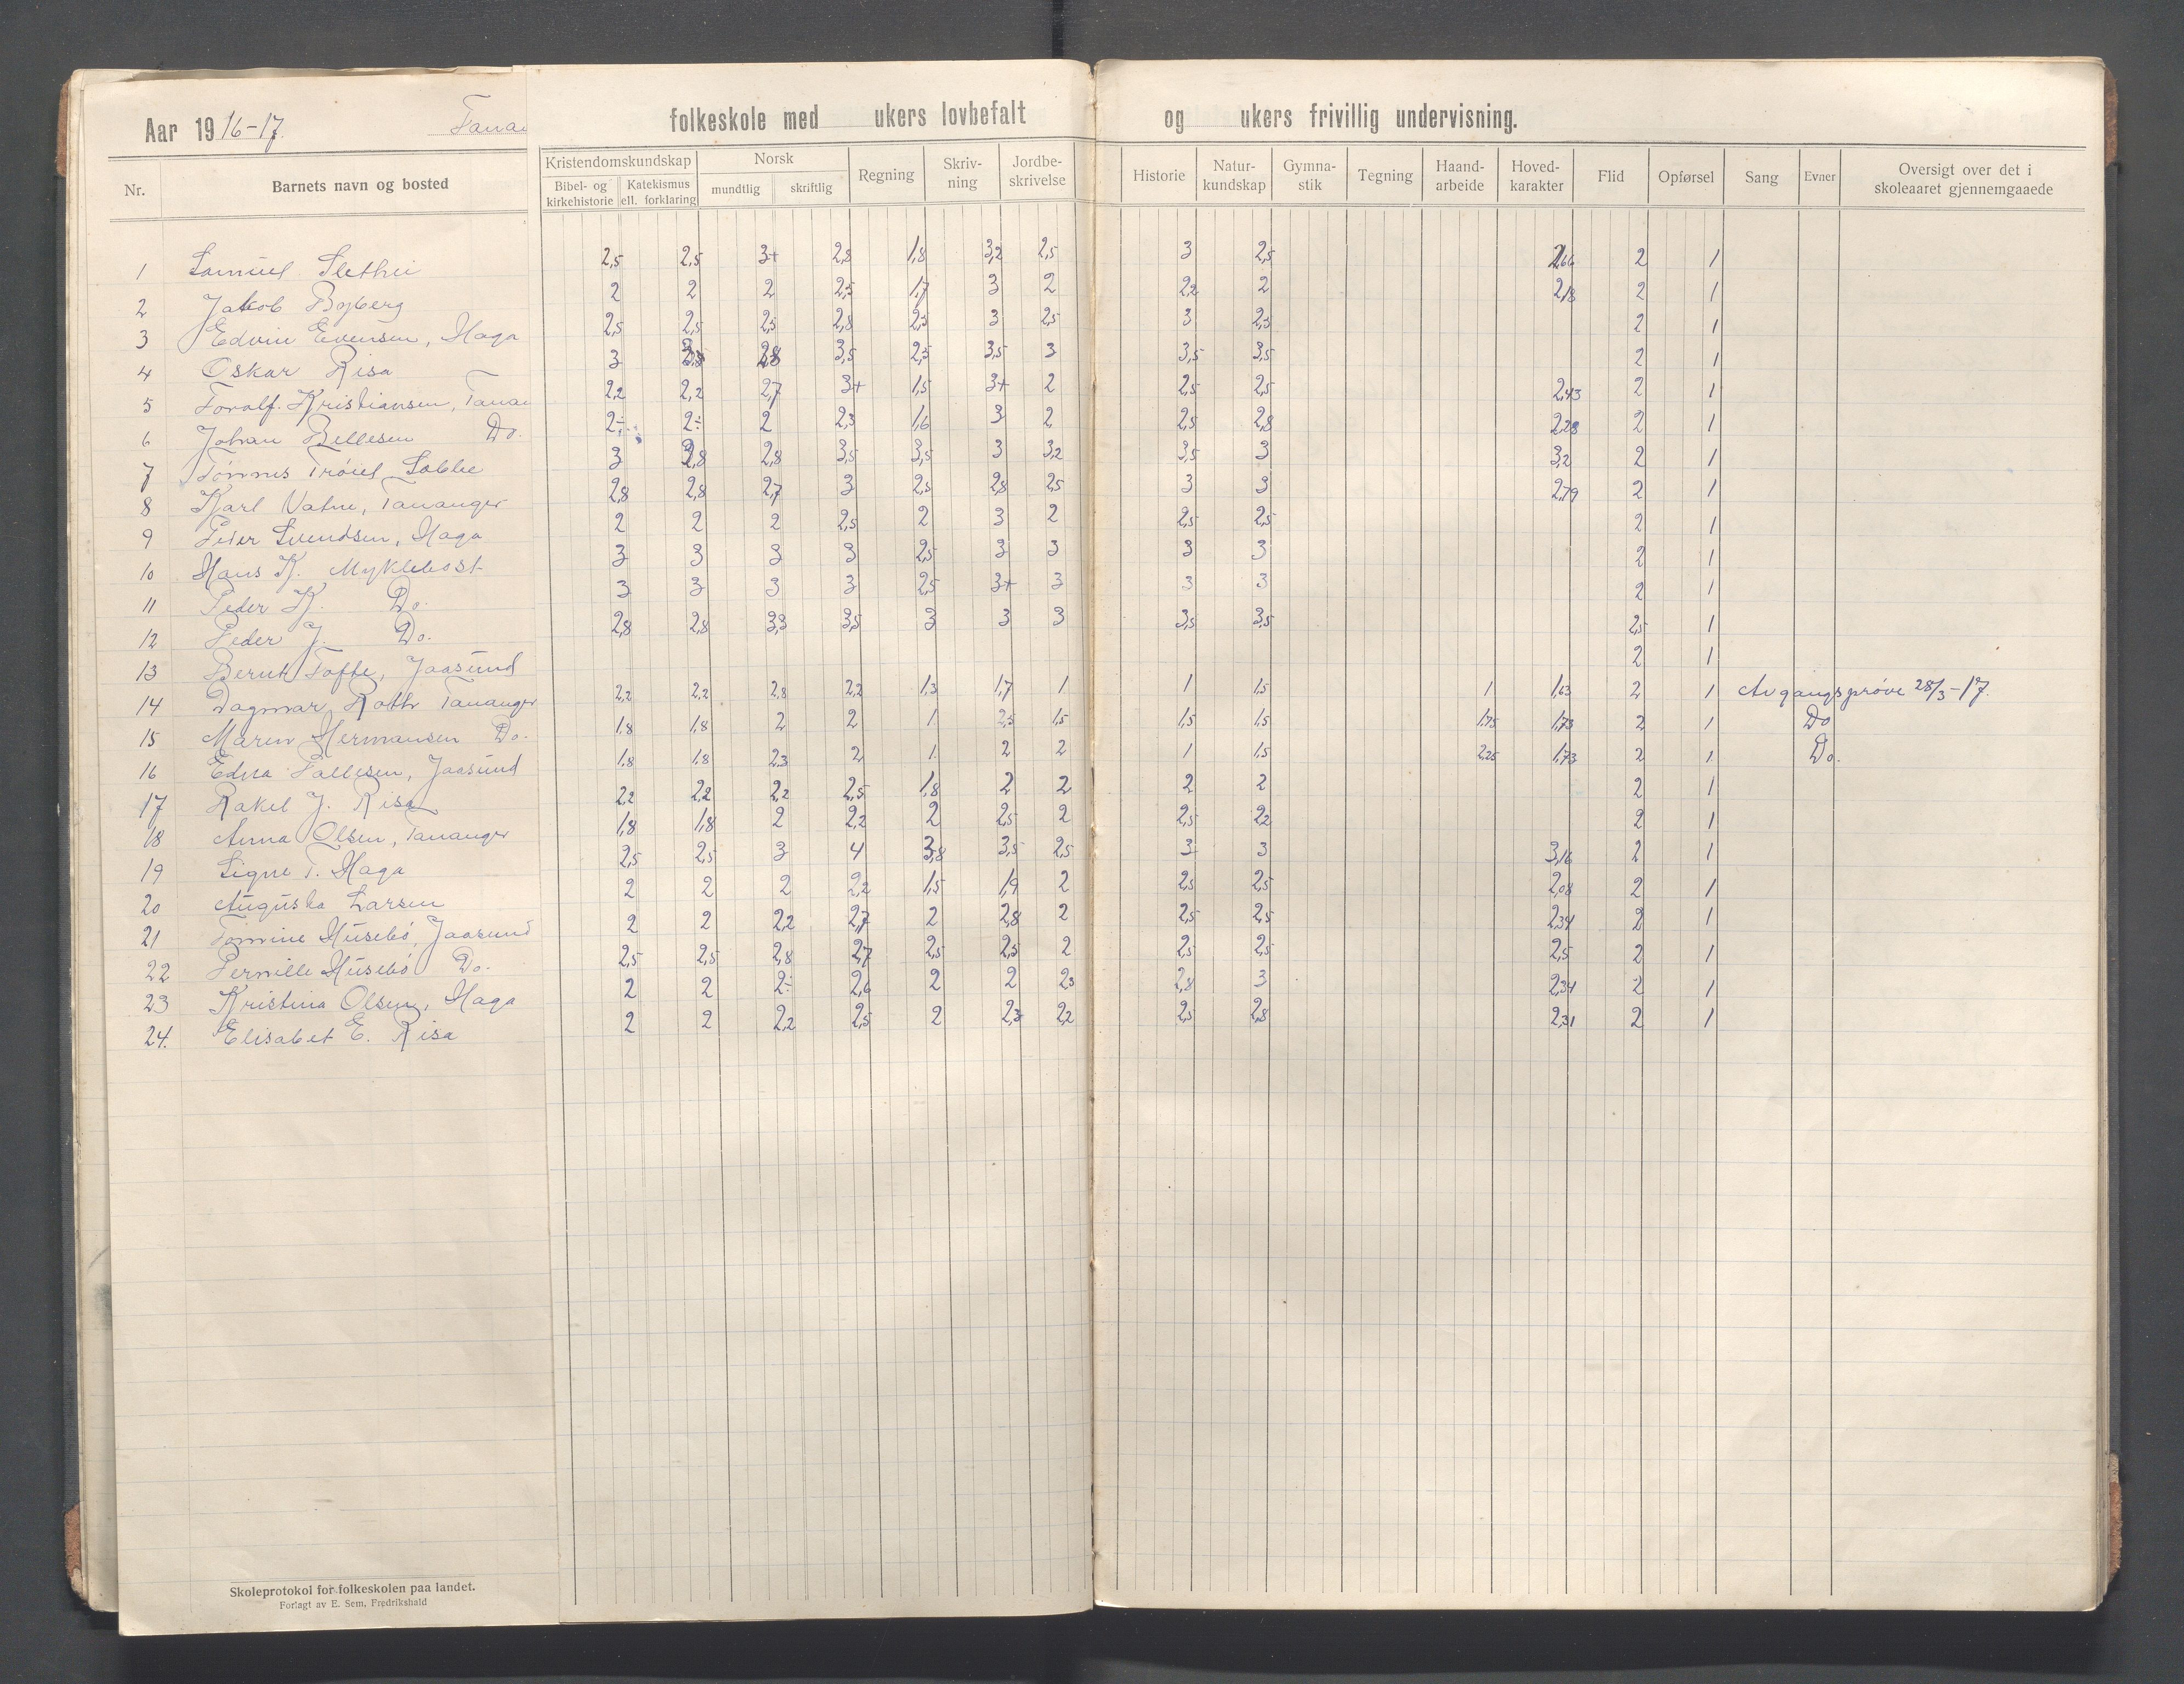 Aar 1916-17. Tanan folkeskole med ukers lovbefalt og ukers frivillig undervisning.
Nr. Barnets navn og bosted Kristendomskundskap Bibel- og kirkehistorie Katekismus ell. forklaring Norsk mundtlig skriftlig Regning Skriv-ning Jordbe-skrivelse Historie Natur-kundskap Gymna-stik Tegning Haand-arbeide Hoved-karakter Flid Opførsel Sang Evner Oversigt over det i skoleaaret gjennemgaaede
1 Samuel Slethei 2,5 2,5 3+ 2,8 1,8 3,2 2,5 3 2,5 2,66 2 1
2 Jakob Byberg 2 2 2 2,5 1,7 3 2 2,2 2 2,18 2 1
3 Edvin Evensen, Haga 2,5 2,5 2,5 2,8 2,5 3 2,5 3 2,5 2 1
4 Oskar Risa 3 2,8 3,5 2,5 3,5 3 3,5 3,5 2 1
5 Toralf Kristiansen, Tanan 2,2 2,2 2,7 3+ 1,5 3+ 2 2,5 2,5 2,43 2 1
6 Johan Do. 2÷ 2÷ 2 2,3 1,6 3 2 2,5 2,8 2,28 2 1
7 Tønnes 3 2,8 2,8 3,5 3,5 3 3,2 3,5 3 3,2 2 1
8 Karl Vatne, Tananger 2,8 2,8 2,7 3 2,5 2,8 2,5 3 3 2,79 2 1
9 Peder Svendsen, Haga 2 2 2 2,5 2 3 2 2,5 2,5 2 1
10 Hans K. Myklebost 3 3 3 3 2,5 3 3 3 3 2 1
11 Peder K. Do. 3 3 3 3 2,5 3+ 3 3 3 2 1
12 Peder J. Do. 2,8 2,8 3,3 3,5 3 3 3 3,5 3,5 2,5 1
13 Bernt Tofte, Jaasund 2 1
14 Dagmar Roth Tananger 2,2 2,2 2,8 2,2 1,3 1,7 1 1 1,5 1 1,63 2 1 Avgangsprøve 28/3-17.
15 Maren Hermansen Do. 1,8 1,8 2 2 1 2,5 1,5 1,5 1,5 1,75 1,73 2 1 Do
16 Edna Pallesen, Jaasund 1,8 1,8 2,3 2 1. 2 2 1 1,5 2,25 1,73 2 1 Do.
17 Rakel J. Risa 2,2 2,2 2,2 2,5 1,8 2 2 2 2 2 1
18 Anna Olsen, Tananger 1,8 1,8 2 2,2 2 2,5 2 2,5 2,2 2 1
19 Signe T. Haga 2,5 2,5 3 4 3,8 3,5 2,5 3 3 3,16 2 1
20 Augusta Larsen 2 2 2 2,2 1,5 1,9 2 2,5 2,5 2,08 2 1
21 Tomine Husebø, Jaasund 2 2 2,2 2,7 2 2,8 2 2,5 2,5 2,34 2 1
22 Pernille Husebø Do. 2,5 2,5 2,8 2,7 2,5 2,5 2 2,5 2,5 2,5 2 1
23 Kristina Olsen, Haga 2 2 2÷ 2,6 2 2 2,3 2,8 3 2,34 2 1
24. Elisabet E. Risa 2 2 2,2 2,5 2 2,3 2,2 2,5 2,8 2,31 2 1
Skoleprotokol for folkeskolen paa landet.
Forlagt av E. Sem, Fredrikshald